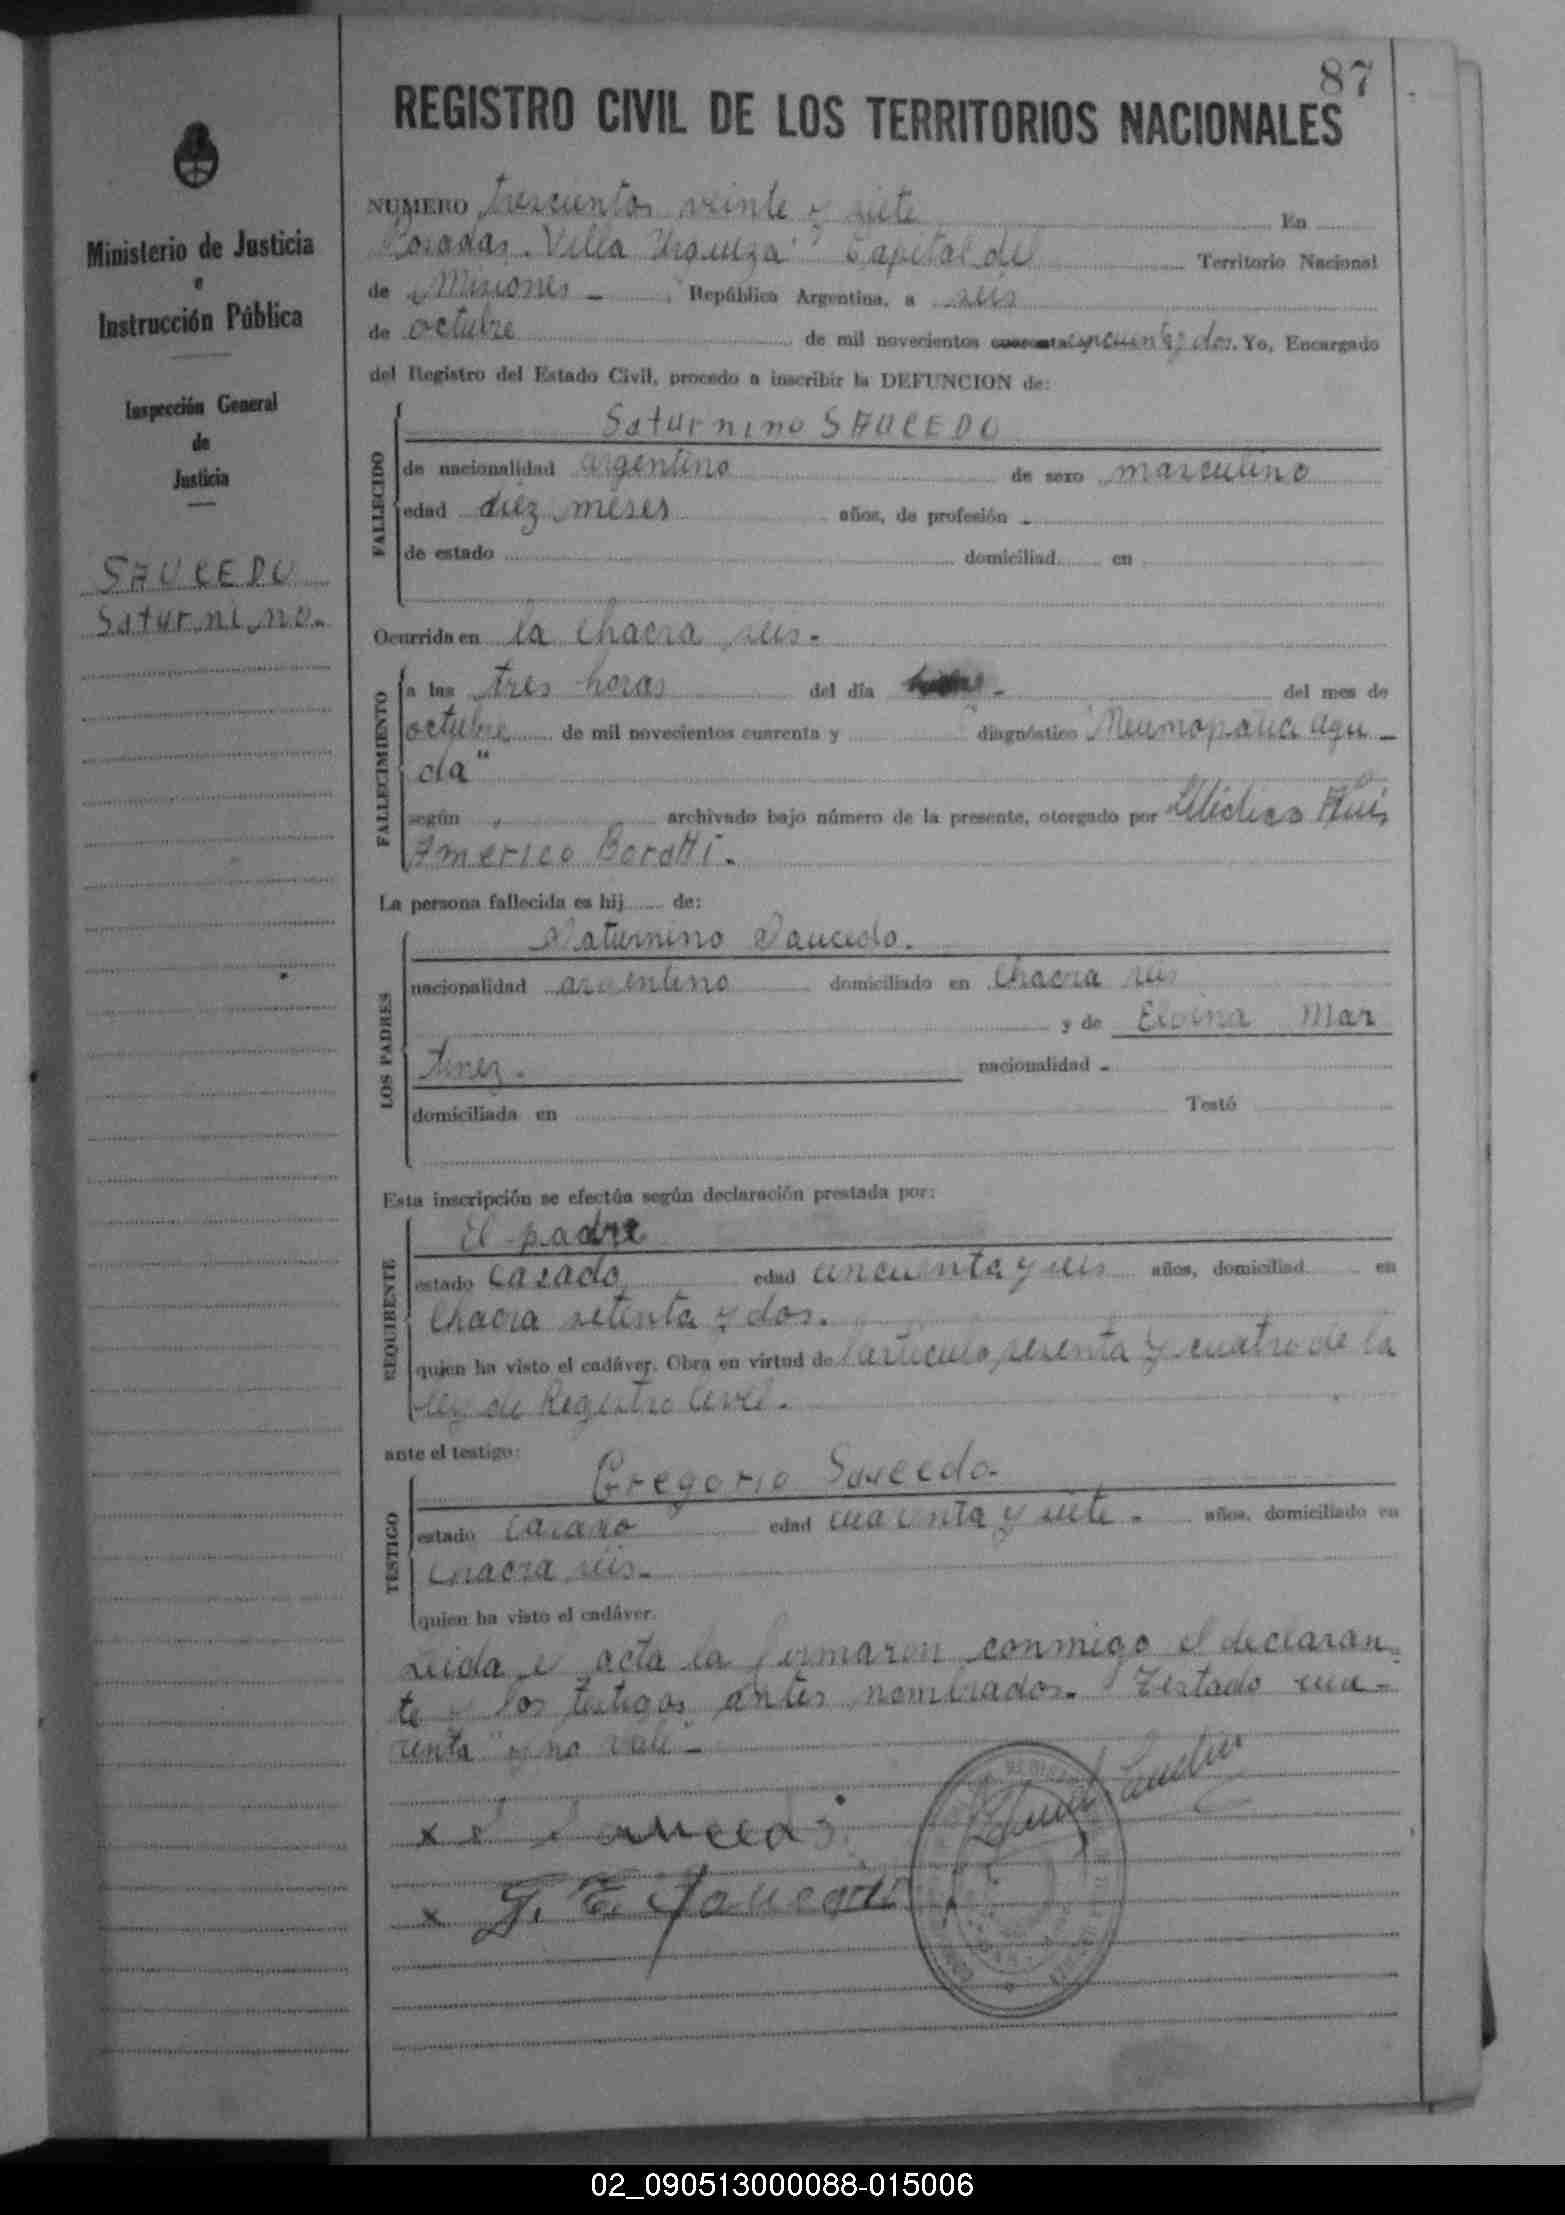 87
REGISTRO CIVIL DE LOS TERRITORIOS NACIONALES
Ministerio de Justicia
e
Instrucción Pública
Inspección General
de
Justicia
SAUCEDO
Saturnino.
NUMERO trescientos veinte y siete En
Posadas. Villa Urquiza" Capital del Territorio Nacional
de Misiones - República Argentina, a seis
de octubre de mil novecientos cuarenta cincuenta y dos. Yo, Encargado
del Registro del Estado Civil, procedo a inscribir la DEFUNCION de:
FALLECIDO
Saturnino SAUCEDO
de nacionalidad argentino de sexo masculino
edad diez meses años, de profesión -
de estado domiciliad en
Ocurrida en la Chacra seis.
FALLECIMIENTO
a las tres horas del día - del mes de
octubre de mil novecientos cuarenta y diagnóstico "Neumopatia agu-
da"
según archivado bajo número de la presente, otorgado por Médico
Americo Boratti.
La persona fallecida es hij de:
LOS PADRES
Saturnino Saucedo.
nacionalidad argentino domiciliado en Chacra seis
y de Elvina Mar
tinez. nacionalidad -
domiciliada en Testó
Esta inscripción se efectúa según declaración prestada por:
REQUIRENTE
El padre
estado casado edad cincuenta y seis años, domiciliad en
Chacra setenta y dos.
quien ha visto el cadáver. Obra en virtud de l'articulo sesenta y cuatro de la
ley de Registro Civil.
ante el testigo:
TESTIGO
Gregorio Saucedo.
estado casado edad cuarenta y siete. años, domiciliado en
chacra seis.
quien ha visto el cadáver.
Leida el acta la firmaron conmigo el declaran-
te y los testigos antes nombrados. Testado "cua-
renta" y no vale -
x S Saucedo
x G. E. Saucedo
02_090513000088-015006